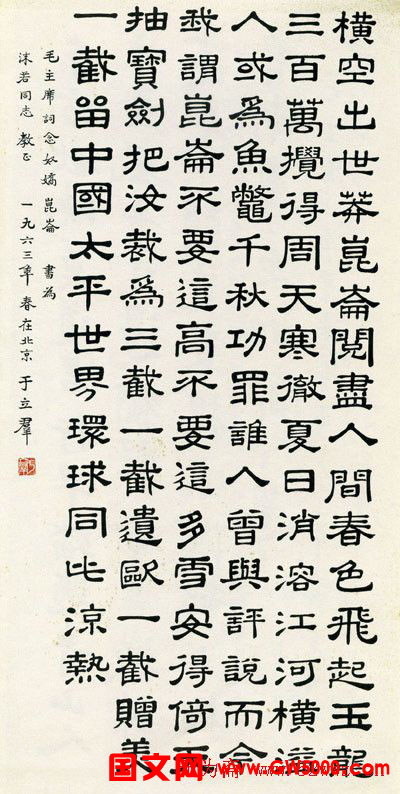 橫空出世莽崑崙閱盡人間春色飛起玉龍
三百萬攪得周天寒徹夏日消溶江河橫溢
人或爲魚鼈千秋功罪誰人曾與評說而今
我謂崑崙不要這高不要這多雪安得倚天
抽寶劍把汝裁爲三截一截遺歐一截贈美
一截留中國太平世界環球同此涼熱
毛主席詞念奴嬌崑崙 書為
沫若同志教正 一九六三年春在北京 于立羣
国文网 www.GW5000.com